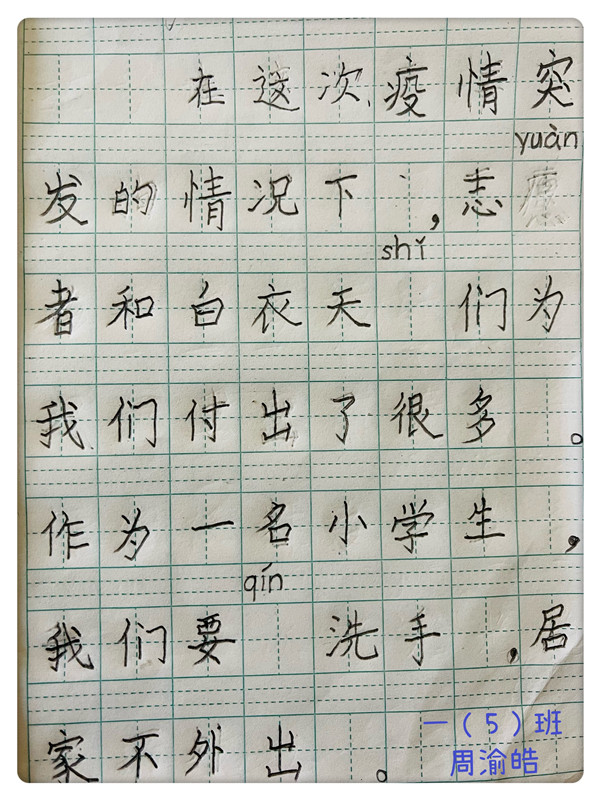 在这次疫情突
yuàn
发的情况下，志
shǐ
者和白衣天 们为
我们付出了很多。
作为一名小学生，
qín
我们要 洗手，居
家不外出。
一（5）班
周渝皓